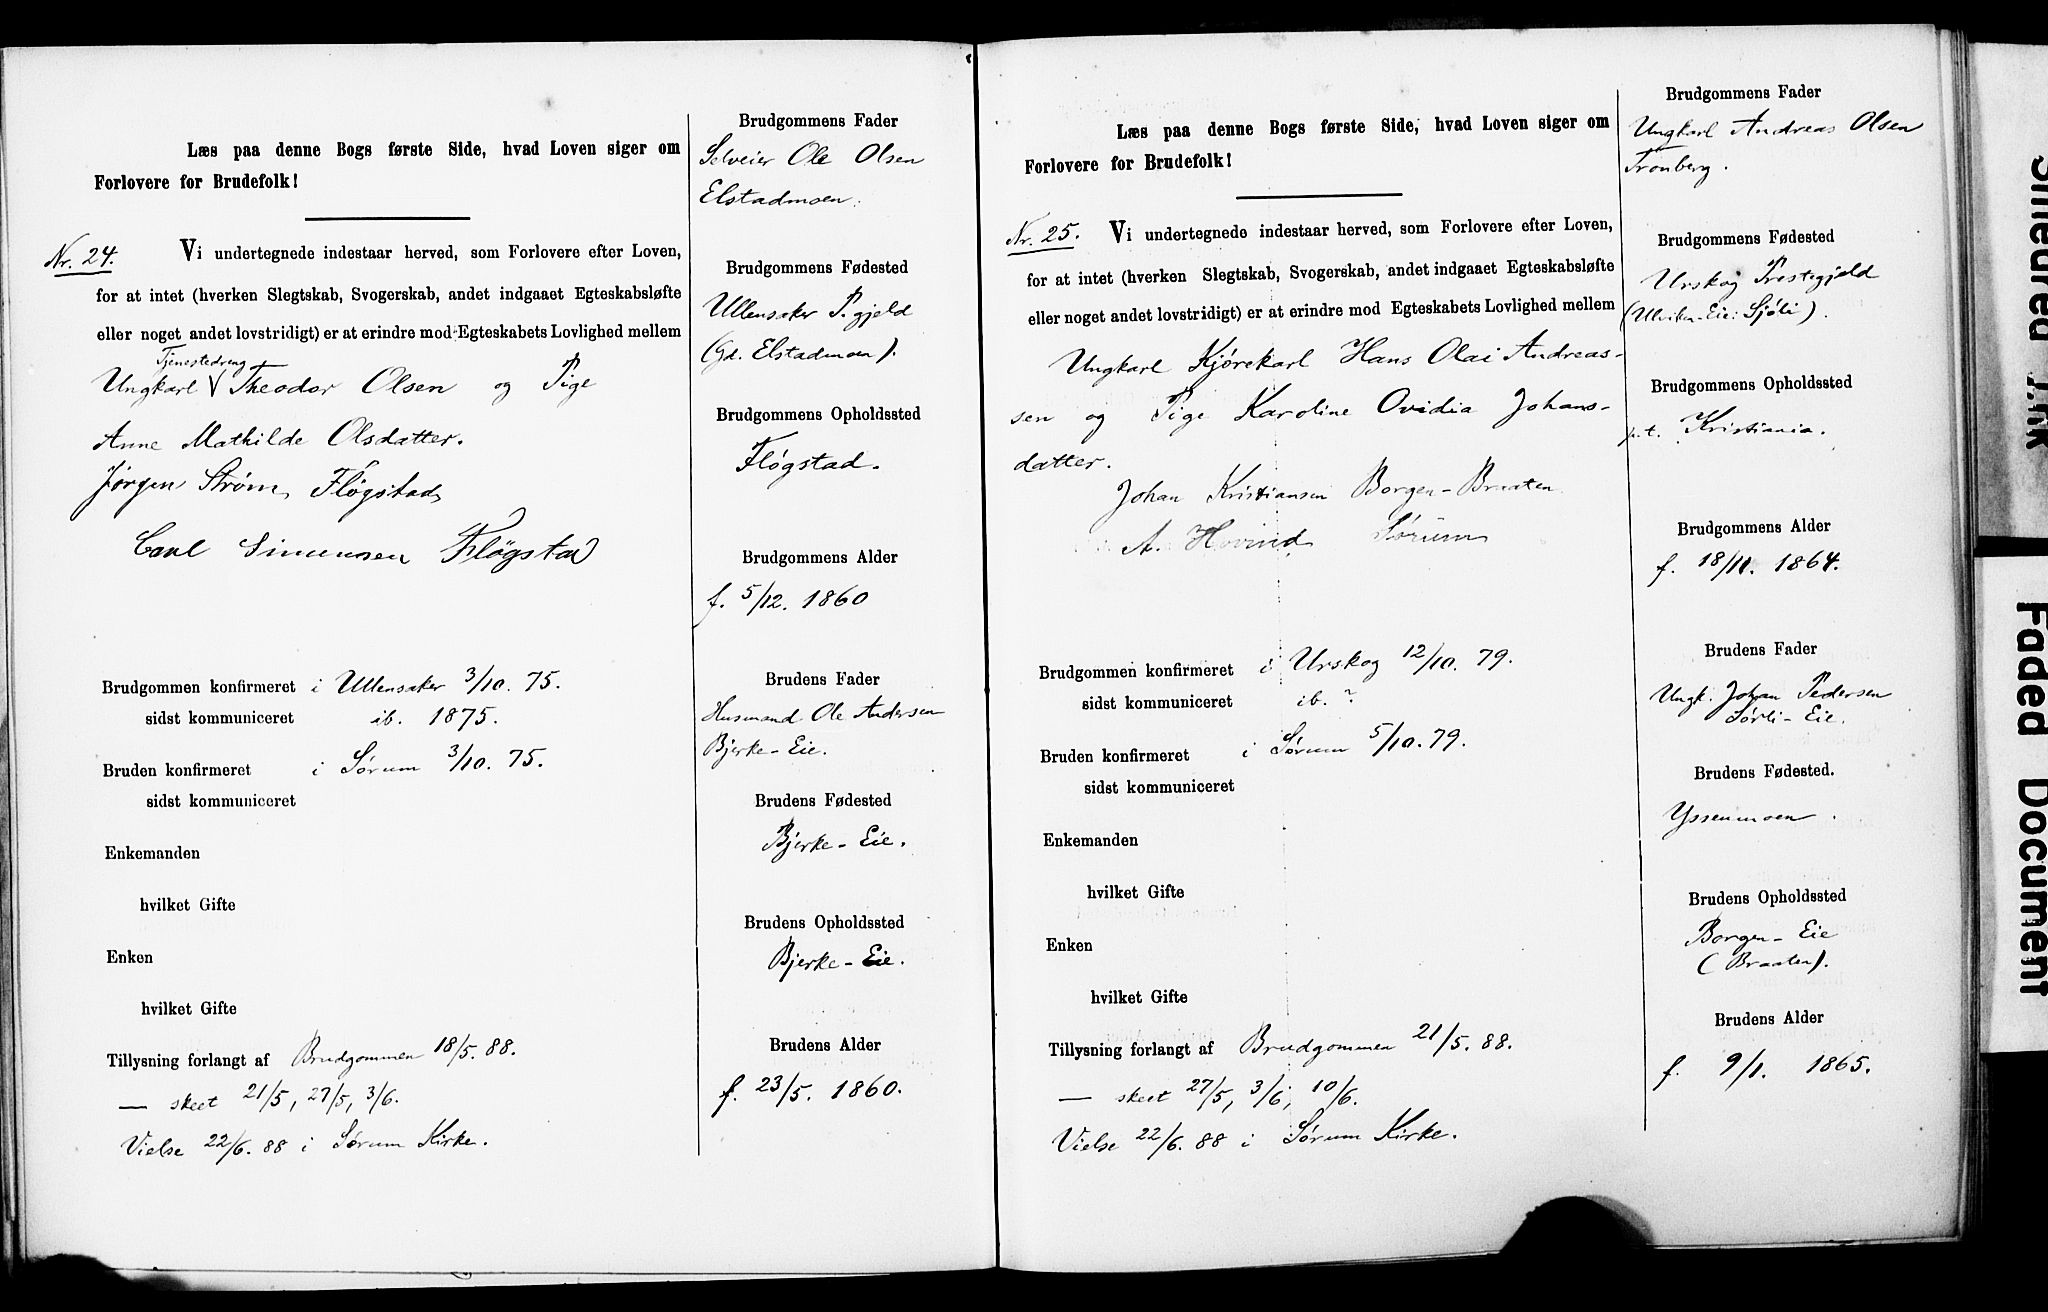 Læs paa denne Bogs første Side, hvad Loven siger om
Forlovere for Brudefolk!
Nr. 24. Vi undertegnede indestaar herved, som Forlovere efter Loven,
for at intet (hverken Slegtskab, Svogerskab, andet indgaaet Egteskabsløfte
eller noget andet lovstridigt) er at erindre mod Egteskabets Lovlighed mellem
Tjenestedreng
Ungkarl V Theodor Olsen og Pige
Anne Mathilde Olsdatter.
Jørgen Strøm Fløgstad
Carl Simensen Fløgstad
Brudgommen konfirmeret i Ullensaker 3/10. 75.
sidst kommuniceret ib. 1875.
Bruden konfirmeret i Sørum 3/10. 75.
sidst kommuniceret
Enkemanden
hvilket Gifte
Enken
hvilket Gifte
Tillysning forlangt af Brudgommen 18/5. 88.
— skeet 21/5, 27/5, 3/6.
Vielse 22/6. 88 i Sørum Kirke.
Brudgommens Fader
Selveier Ole Olsen
Elstadmoen.
Brudgommens Fødested
Ullensaker P.gjeld
(Gd. Elstadmoen).
Brudgommens Opholdssted
Fløgstad.
Brudgommens Alder
f. 5/12. 1860
Brudens Fader
Husmand Ole Andersen
Bjerke-Eie.
Brudens Fødested
Bjerke-Eie.
Brudens Opholdssted
Bjerke-Eie.
Brudens Alder
f. 23/5. 1860.
Læs paa denne Bogs første Side, hvad Loven siger om
Forlovere for Brudefolk!
Nr. 25. Vi undertegnede indestaar herved, som Forlovere efter Loven,
for at intet (hverken Slegtskab, Svogerskab, andet indgaaet Egteskabsløfte
eller noget andet lovstridigt) er at erindre mod Egteskabets Lovlighed mellem
Ungkarl Kjørekarl Hans Olai Andreas-
sen og Pige Karoline Ovidia Johans-
datter.
Johan Kristiansen Borgen-Braaten
A. Hovind Sørum
Brudgommen konfirmeret i Urskog 12/10. 79.
sidst kommuniceret ib. ?
Bruden konfirmeret i Sørum 5/10. 79.
sidst kommuniceret
Enkemanden
hvilket Gifte
Enken
hvilket Gifte
Tillysning forlangt af Brudgommen 21/5. 88.
— skeet 27/5, 3/6, 10/6.
Vielse 22/6. 88 i Sørum Kirke.
Brudgommens Fader
Ungkarl Andreas Olsen
Tronberg.
Brudgommens Fødested
Urskog Prestegjeld
(Ulviken-Eie: Sjøli).
Brudgommens Opholdssted
p.t. Kristiania.
Brudgommens Alder
f. 18/11. 1864.
Brudens Fader
Ungk. Johan Pedersen
Sørli-Eie.
Brudens Fødested.
Yssenmoen.
Brudens Opholdssted
Borgen-Eie
(Braaten).
Brudens Alder
f. 9/1. 1865.
Faded Document